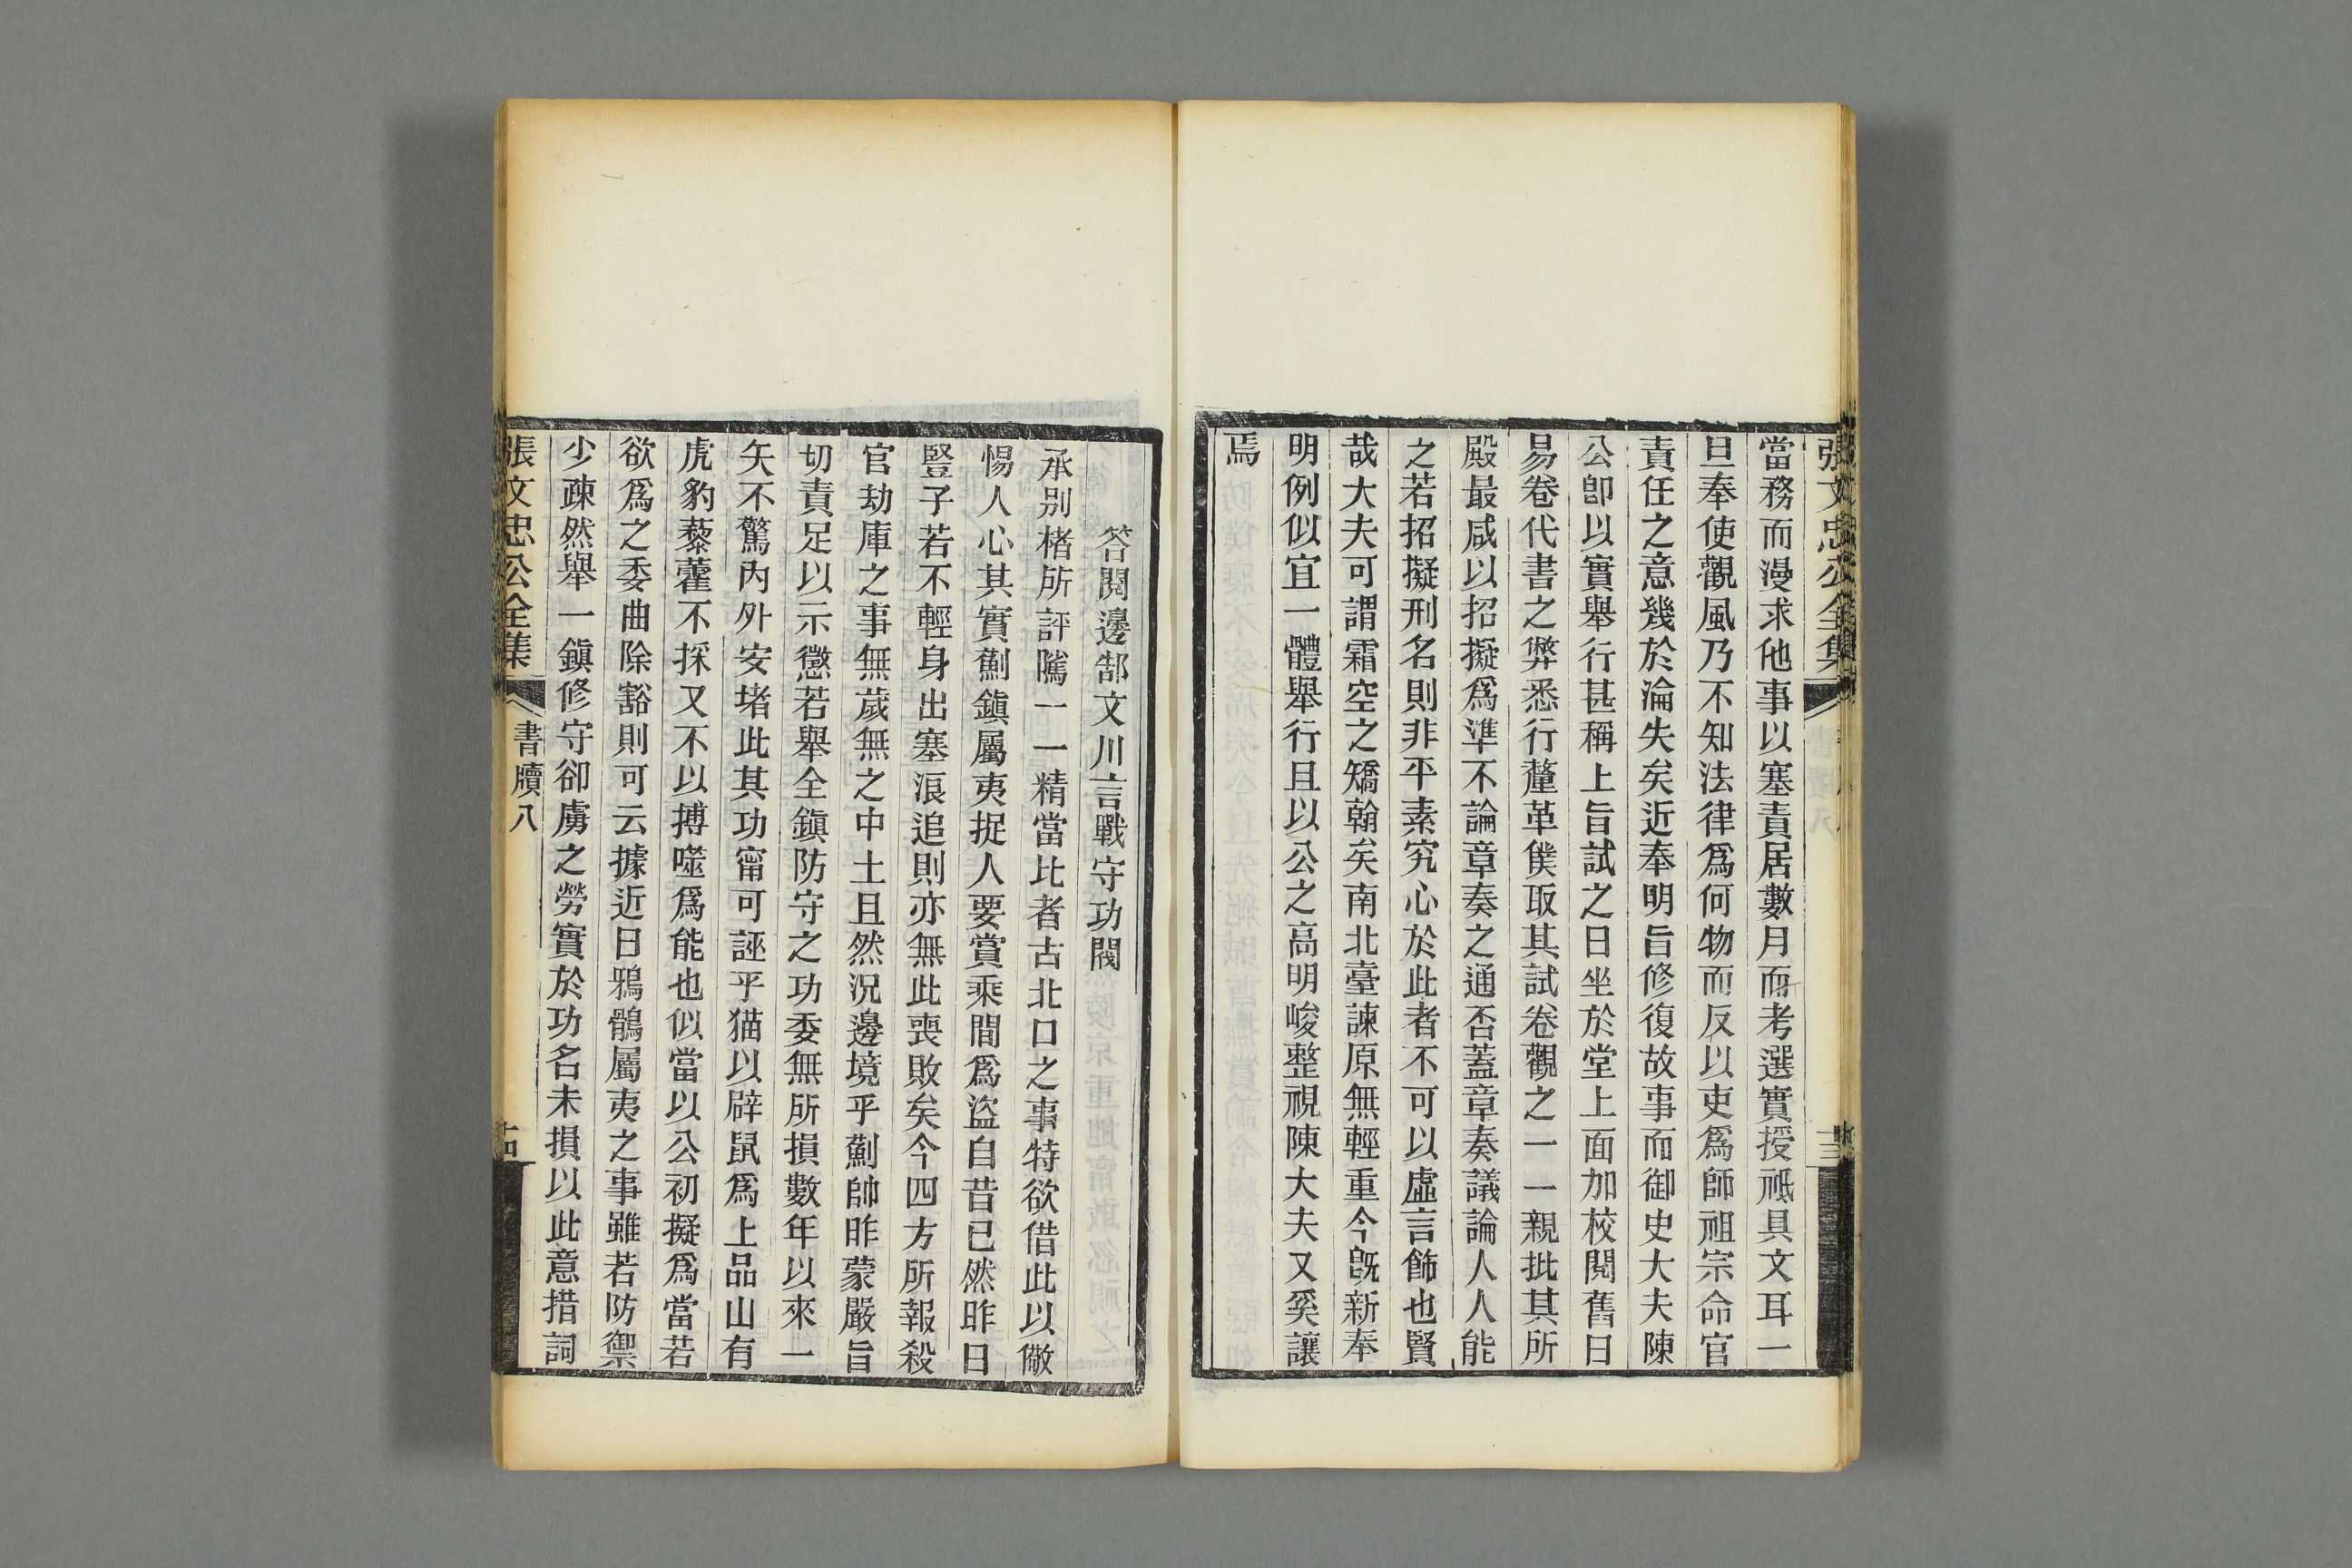 張文忠公全集
十三
當務而漫求他事以塞責居數月而考選實授祗具文耳一
旦奉使觀風乃不知法律爲何物而反以吏爲師祖宗命官
責任之意幾於淪失矣近奉明旨修復故事而御史大夫陳
公卽以實舉行甚稱上旨試之日坐於堂上面加校閱舊日
易卷代書之弊悉行釐革僕取其試卷觀之一一親批其所
殿最咸以招擬爲準不論章奏之通否蓋章奏議論人人能
之若招擬刑名則非平素究心於此者不可以虛言飾也賢
哉大夫可謂霜空之矯翰矣南北臺諫原無輕重今旣新奉
明例似宜一體舉行且以公之高明峻整視陳大夫又奚讓
焉
答閱邊郜文川言戰守功閥
承別楮所評隲一一精當比者古北口之事特欲借此以儆
惕人心其實薊鎭屬夷捉人要賞乘間爲盜自昔已然昨日
豎子若不輕身出塞浪追則亦無此喪敗矣今四方所報殺
官劫庫之事無歲無之中土且然況邊境乎薊帥昨蒙嚴旨
切責足以示懲若舉全鎭防守之功委無所損數年以來一
矢不驚內外安堵此其功甯可誣乎猫以辟鼠爲上品山有
虎豹藜藿不採又不以搏噬爲能也似當以公初擬爲當若
欲爲之委曲除豁則可云據近日鴉鶻屬夷之事雖若防禦
少疎然舉一鎭修守卻虜之勞實於功名未損以此意措詞
張文忠公全集
書牘八
十四